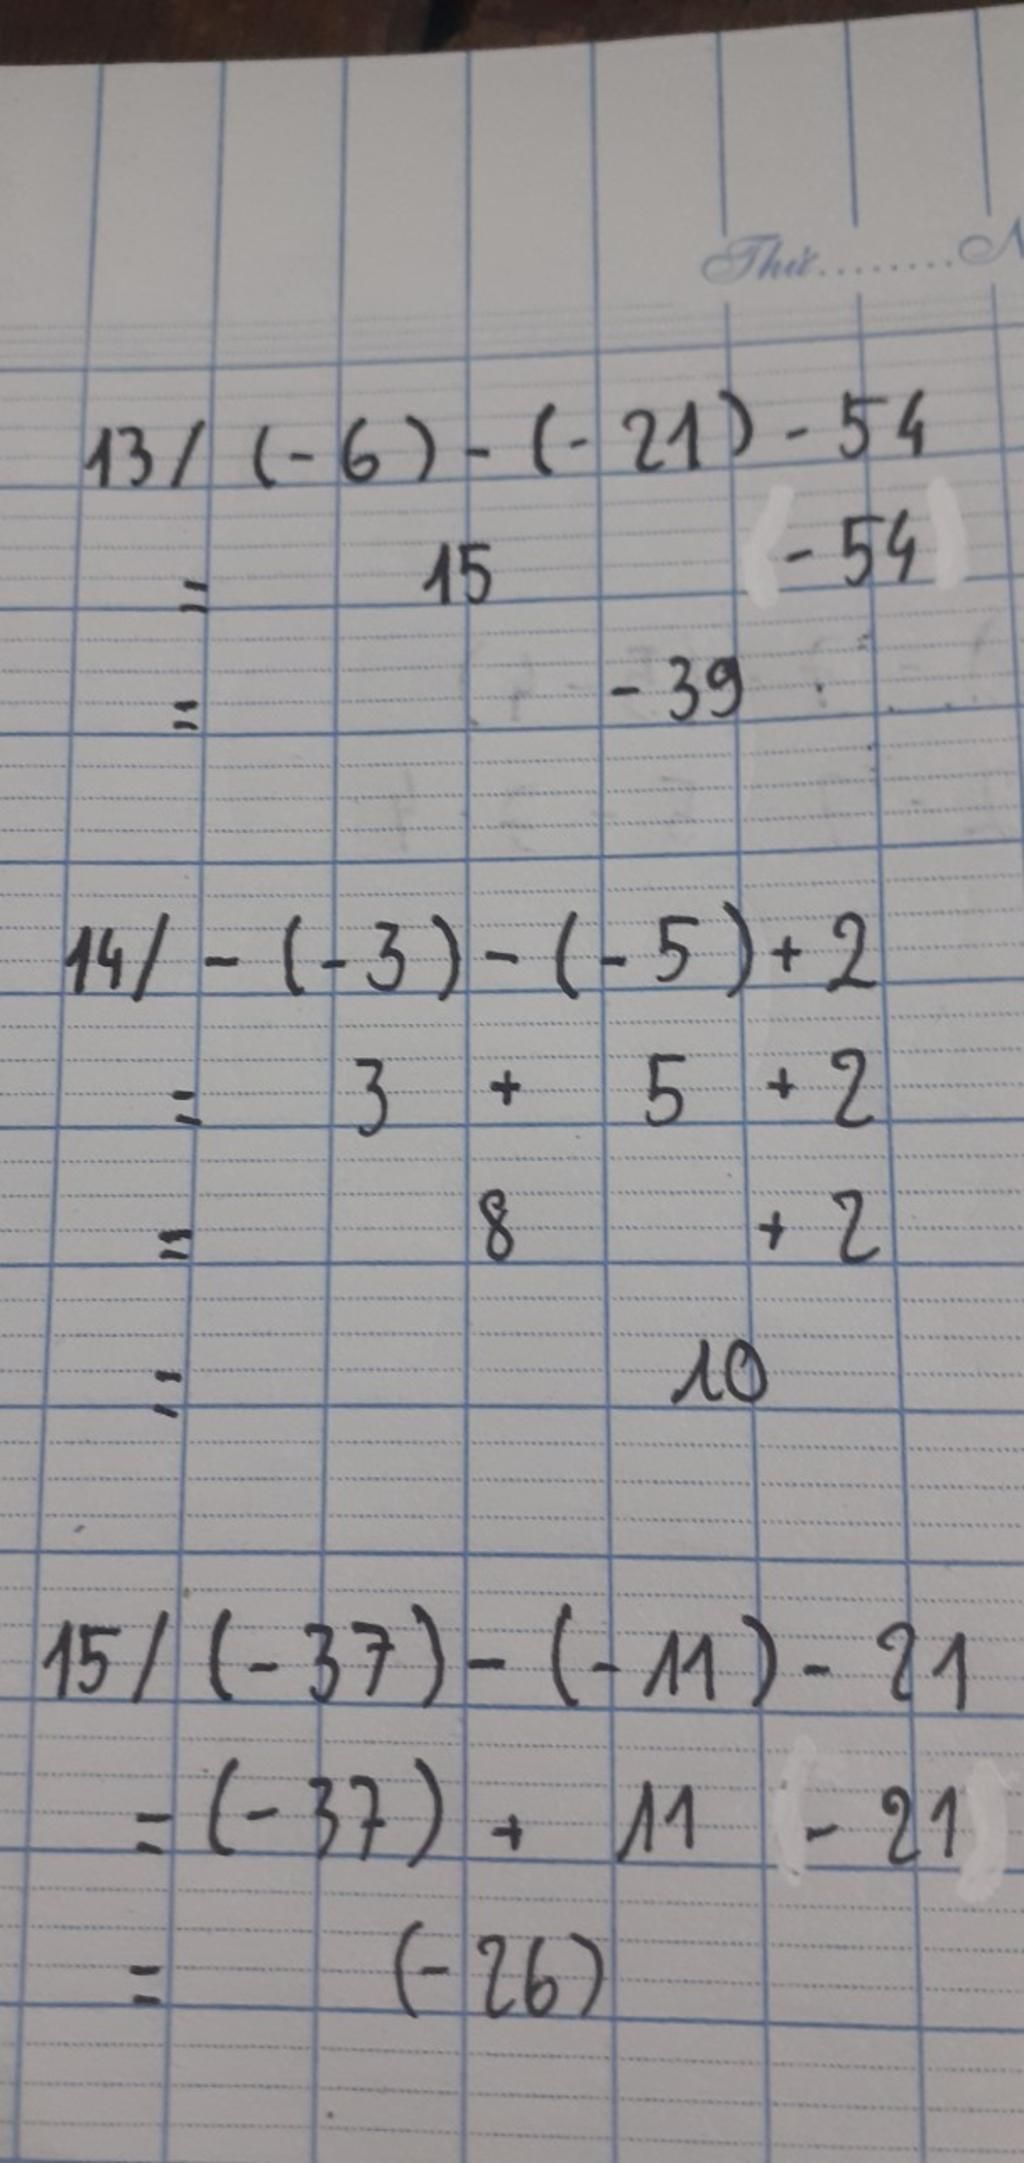 Thứ.........N
13/ (-6) - (-21) - 54
= 15 - 54
= - 39
14/ - (-3) - (-5) + 2
= 3 + 5 + 2
= 8 + 2
= 10
15/ (-37) - (-11) - 21
= (-37) + 11 - 21
= (-26)